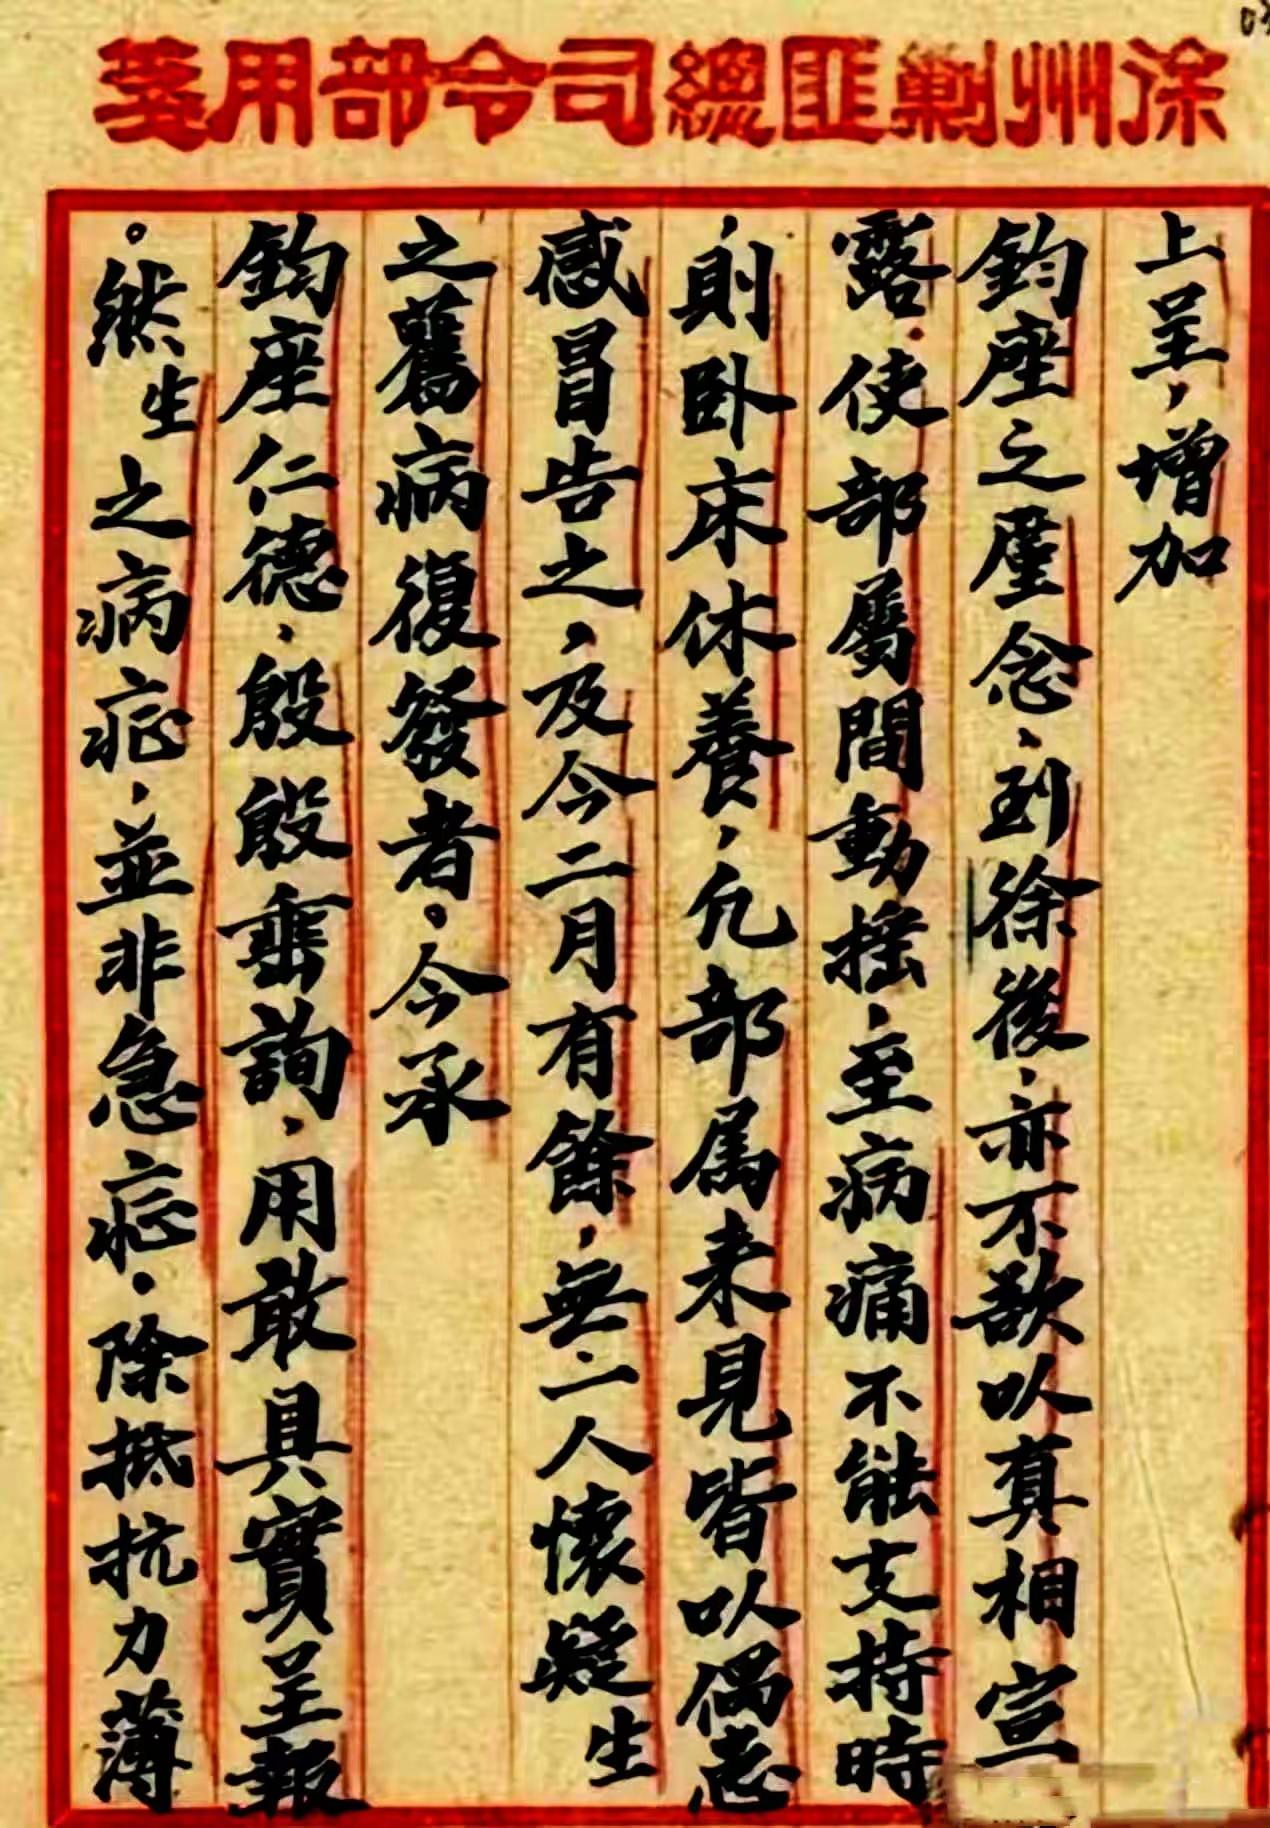 徐州剿匪總司令部用箋
上呈，增加
鈞座之廑念、到徐後、亦不欲以真相宣
露、使部屬間動搖、至病痛不能支持時
，則卧床休養，凢部属来見皆以偶患
感冒告之，及今二月有餘，無一人懷疑生
之舊病復發者。今承
鈞座仁德、殷殷垂詢、用敢具實呈報
。然生之病症，並非急症、除抵抗力薄